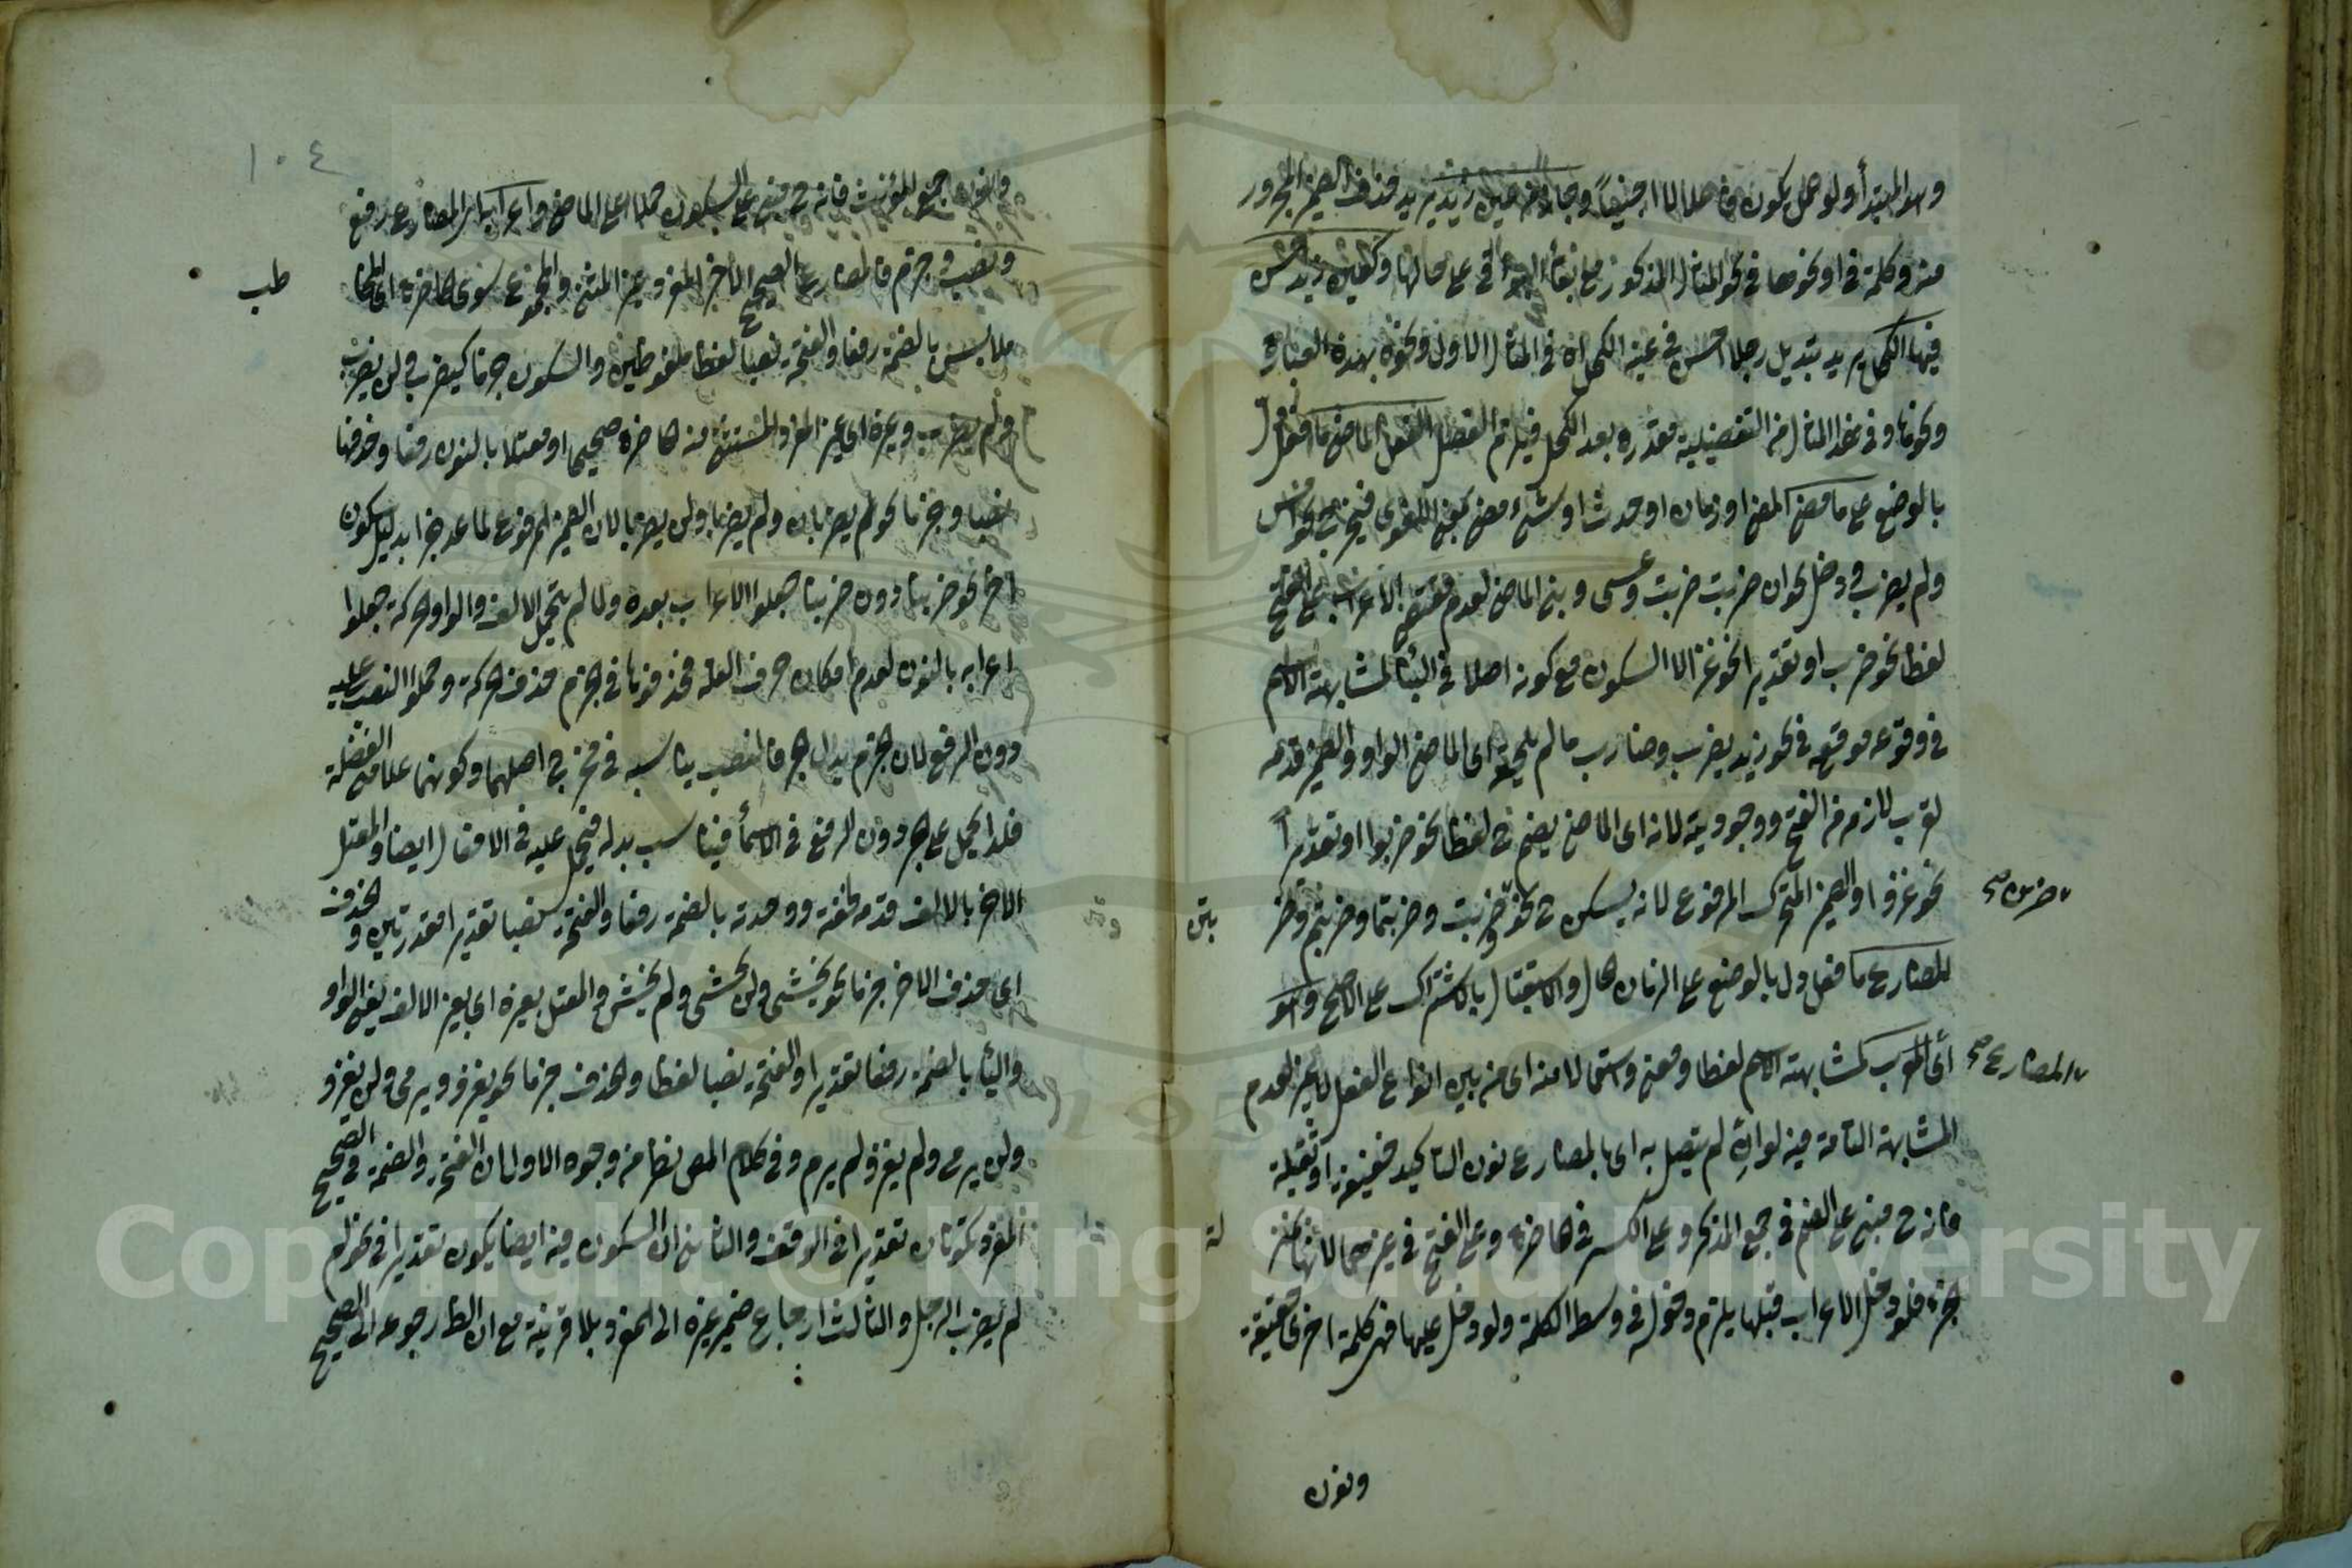 وهو المبتدأ ولو حمل يكون فاصلا لا اجنبيا وجاز من عين زيد يريد فحذف الضمير المجرور
منه وكلمة في او نحوها في نحو المثال المذكور مع بقاء البواقي على حالها وكعين زيد احسن
فيها الكحل يريد بتبديل رجلا احسن في عينه الكحل اه في المثال الاول ونحوه بهذه العبارة
ونحوها وفي هذا المثال من التفضيلية مقدره بعد الكحل الفعل الماضي ما دل
بالوضع على ما مضى المعنى او زمان او حدث او شيء مضى بمعنى اللغوى فيخرج نحو امس
ولم يضرب ودخل نحو ان ضربت ضربت وعسى وبني الماضي لعدم مقتضى الاعراب على الفتح
لفظا نحو ضرب او تقديرا نحو غزا لا السكون مع كونه اصلا في البناء لمشابهته الاسم
في وقوعه موقعه في نحو زيد يضرب وضارب ما لم يلحقه اى الماضي الواو والضمير قدمه
لقرب لازمه من الفتح ووجوديته لانه اى الماضي يضم ح لفظا نحو ضربوا او تقديرا
نحو غزوا والضمير المتحرك المرفوع لانه يسكن ح نحو ضربت وضربتما وضربتم وضر
بتن
ضربن صح
المضارع ما دل بالوضع على الزمان الحال والاستقبال بالاشتراك على الاصح وهو
المضارع صح
اى المعرب لمشابهته الاسم لفظا ومعنى واستعمالا منه اى من بين انواع الفعل لا غير لعدم
المشابهة التامة فيه لو ان لم يتصل به اى بالمضارع نون التاكيد خفيفة او ثقيلة
فانه ح مبني على الضم في جمع المذكر وعلى الكسر في الحاضرة وعلى الفتح في غيرهما لانها كـ
لة
جزء فلو دخل الاعراب قبلها يلزم دخوله في وسط الكلمة ولو دخل عليها فهى كلمة اخرى حقيقة
ونون
١٠٤
ونون جمع المؤنث فانه ح مبني على السكون حملا على الماضي واعراب المضارع رفع
ونصب وجزم فالمضارع الصحيح الآخر المفرد غير المثنى والمجموع سوى الحاضرة اى المخا
طب
ملابس بالضمة رفعا والفتحة نصبا لفظا ملفوظين والسكون جزما كيضرب ولن يضرب
ولم يضرب وغيره اى غير المفرد المستثنى منه الحاضرة صحيحا او معتلا بالنون رفعا وحذفها
نصبا وجزما نحو لم يضربان ولم يضربا ولن يضربا لان الضمير المرفوع لما عد جزءا بدليل سكون
آخر نحو ضربنا دون ضربنا جعلوا الاعراب بعده ولما لم يتحمل الالف والواو الحركة جعلوا
اعرابه بالنون لعدم امكان حرف العلة فحذفوها في الجزم حذف الحركة وحملوا النصب عليه
دون الرفع لان الجزم بدل الجر فالنصب يناسبه في مخرج اصلهما وكونهما علامتى الفضلة
فلذا يحمل على الجر دون الرفع في الاسماء فيناسب بدله فيحمل عليه في الافعال ايضا والمعتل
الآخر بالالف قدمه لخفته ووحدته بالضمة رفعا والفتحة نصبا تقديرا مقدرتين والحذف
اى حذف الآخر جزما نحو يخشى ولن يخشى ولم يخش والمعتل بغيره اى بغير الالف يعنى الواو
والياء بالضمة رفعا تقديرا والفتحة نصبا لفظا والحذف جزما نحو يغزو ويرمى ولن يغزو
ولن يرمى ولم يغز ولم يرم وفي كلام المص نظر من وجوه الاول ان الفتحة والضمة في الصحيح
المفرد تكونان تقديرا في الوقف والثاني ان السكون فيه ايضا يكون تقديرا في نحو لم
لم يضرب الرجل والثالث ارجاع ضمير غيره الى المفرد بلا قرينة مع ان الظ رجوعه الى الصحيح